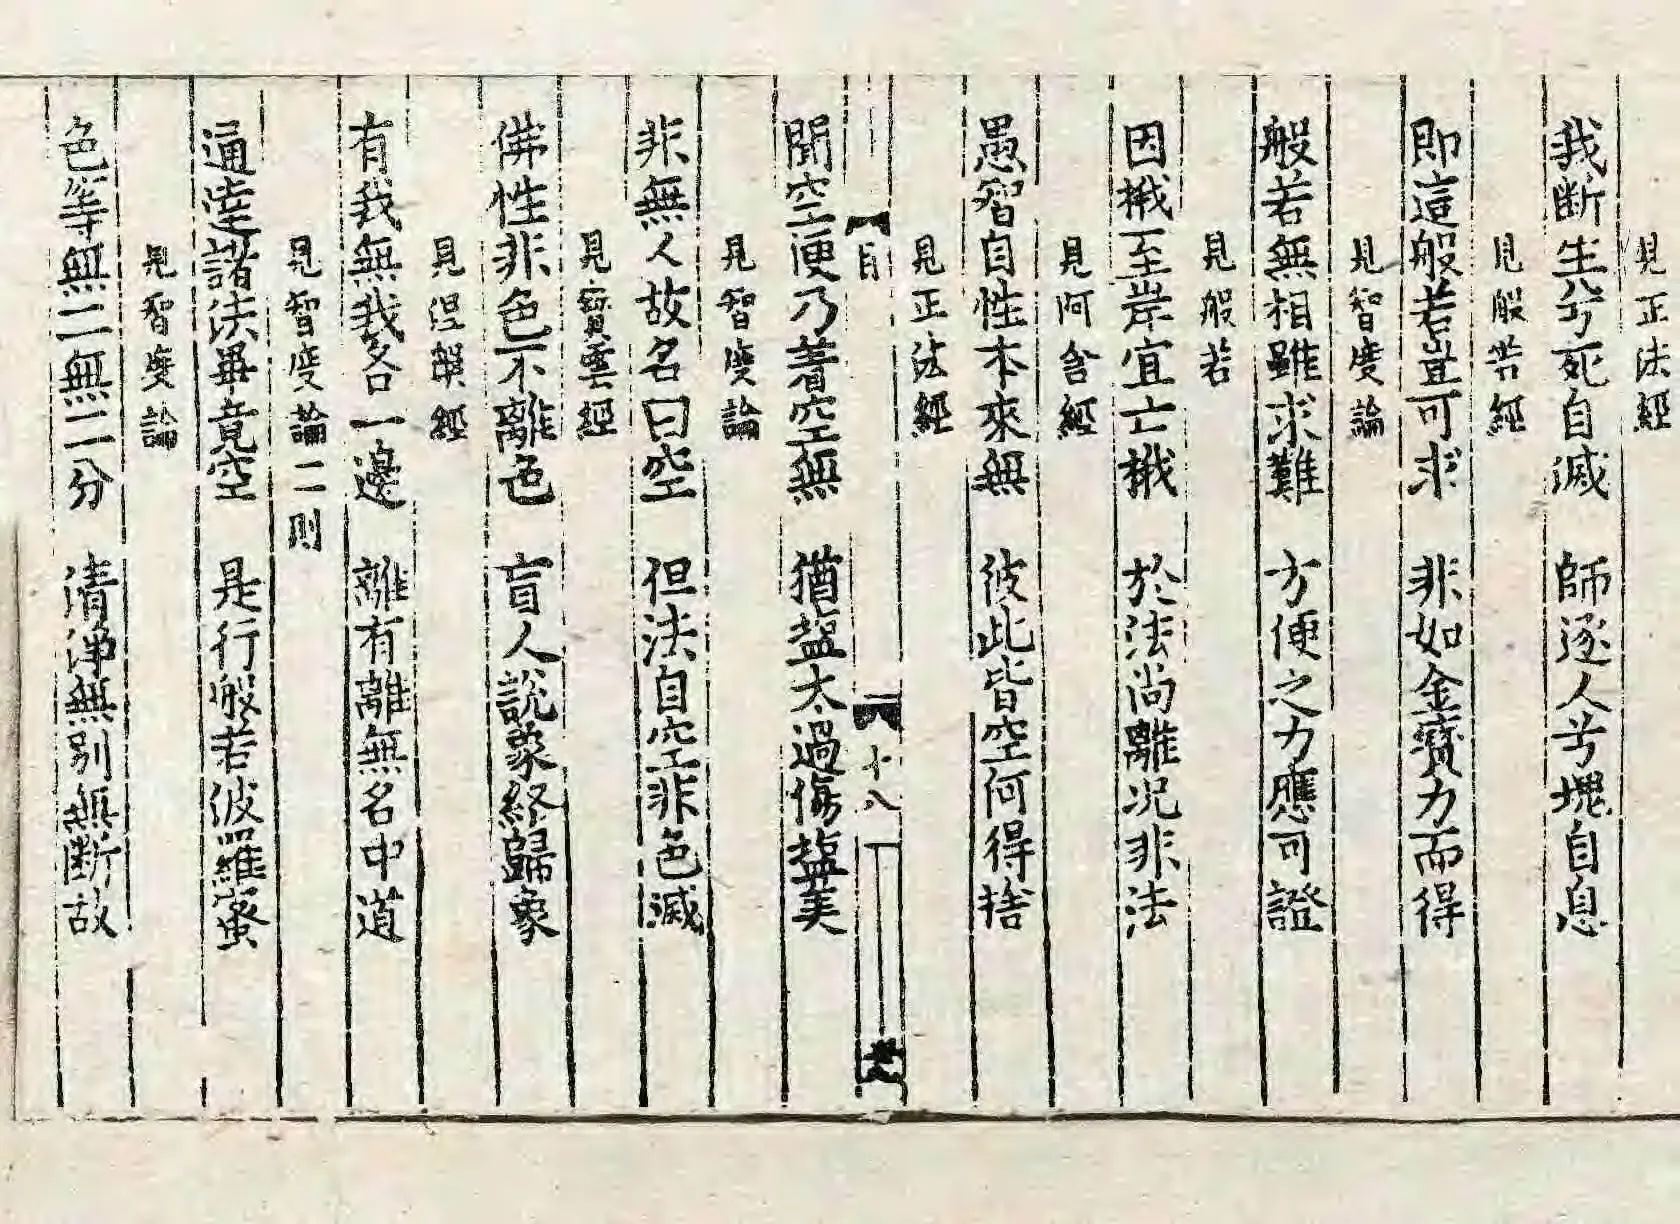 見正法經
我斷生兮死自滅　師逐人兮塊自息
見般若經
即這般若豈可求　非如金寶力而得
見智度論
般若無相雖求難　方便之力應可證
見般若
因檝至岸宜亡檝　於法尚離况非法
見阿含經
愚智自性本來無　彼此皆空何得捨
見正法經
目　十八
聞空便乃着空無　猶盐太過傷盐美
見智度論
非無人故名曰空　但法自空非色滅
見寶雲經
佛性非色不離色　盲人說象終歸象
見涅槃經
有我無我各一邊　離有離無名中道
見智度論二則
通達諸法畢竟空　是行般若波羅蜜
見智度論
色等無二無二分　清淨無別無斷故